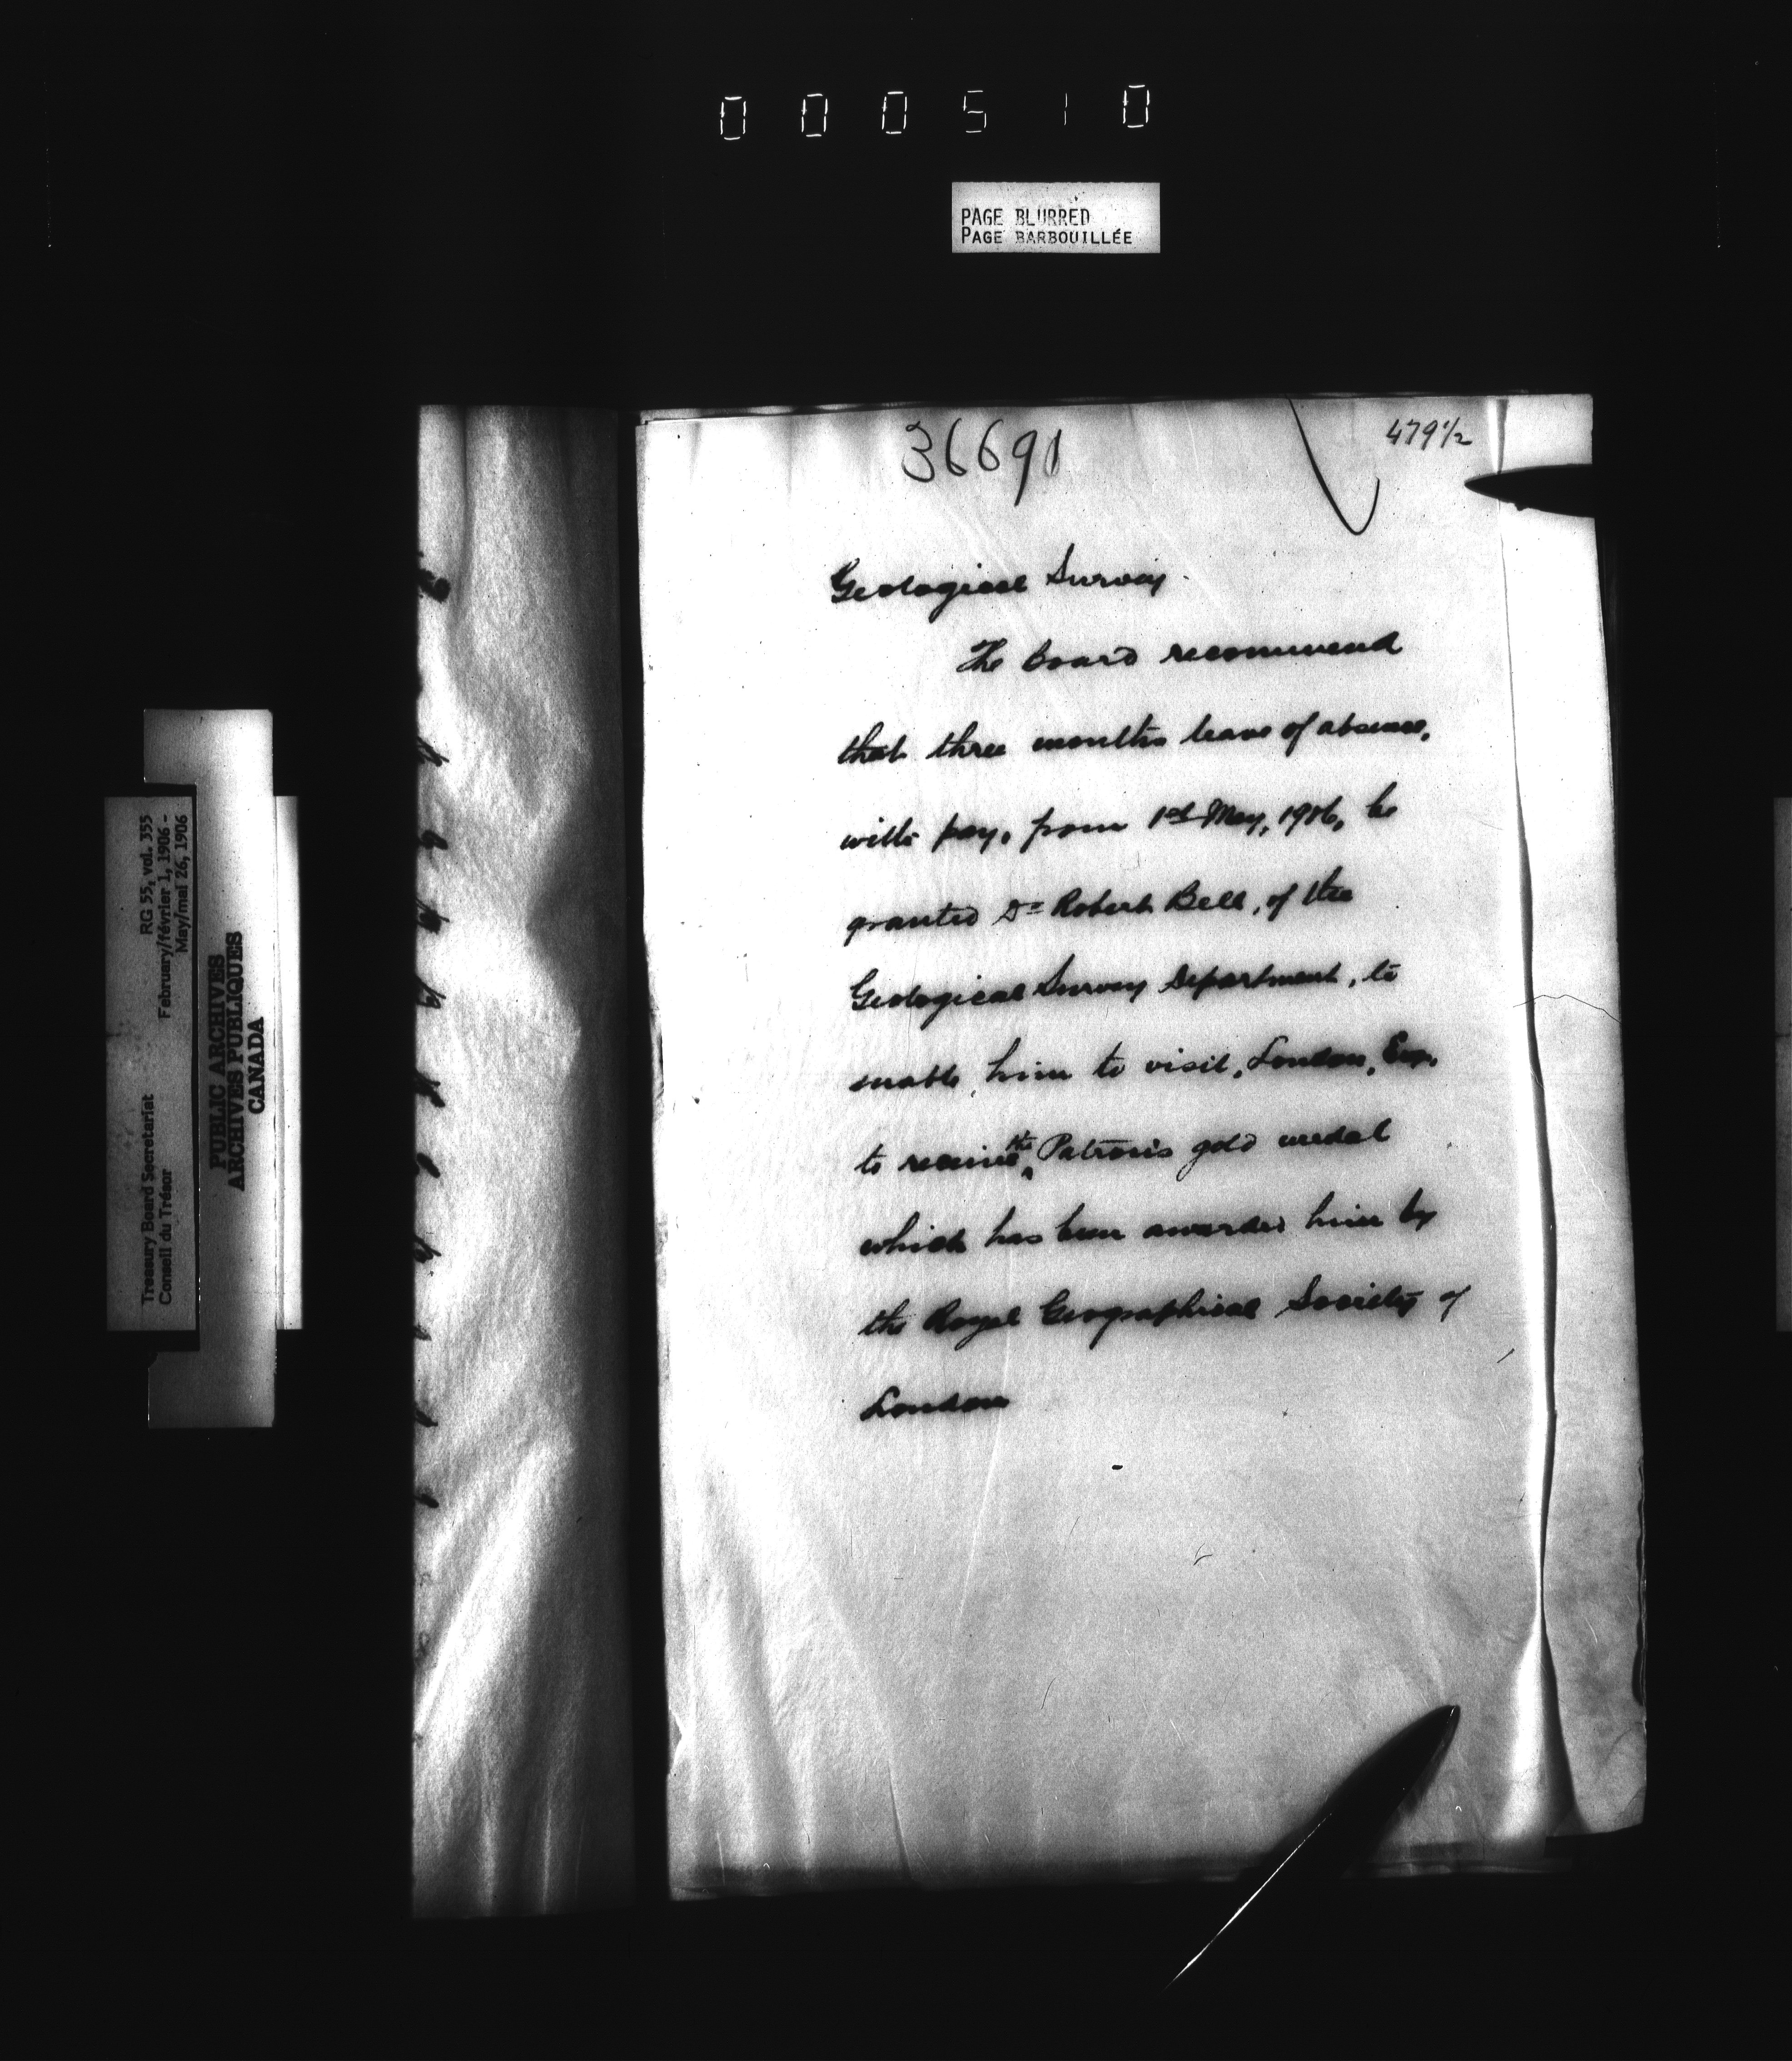 000510
PAGE BLURRED
PAGE BARBOUILLÉE
36691
479½
Geological Survey.
The Board recommend
that three months leave of absence,
with pay, from 1st May, 1906, be
granted Dr Robert Bell, of the
Geological Survey Department, to
enable him to visit, London, Eng.
to receive the Patron's gold medal
which has been awarded him by
the Royal Geographical Society of
London
Treasury Board Secretariat RG 55, vol. 355
Conseil du Trésor February/février 1, 1906 -
May/mai 26, 1906
PUBLIC ARCHIVES
ARCHIVES PUBLIQUES
CANADA